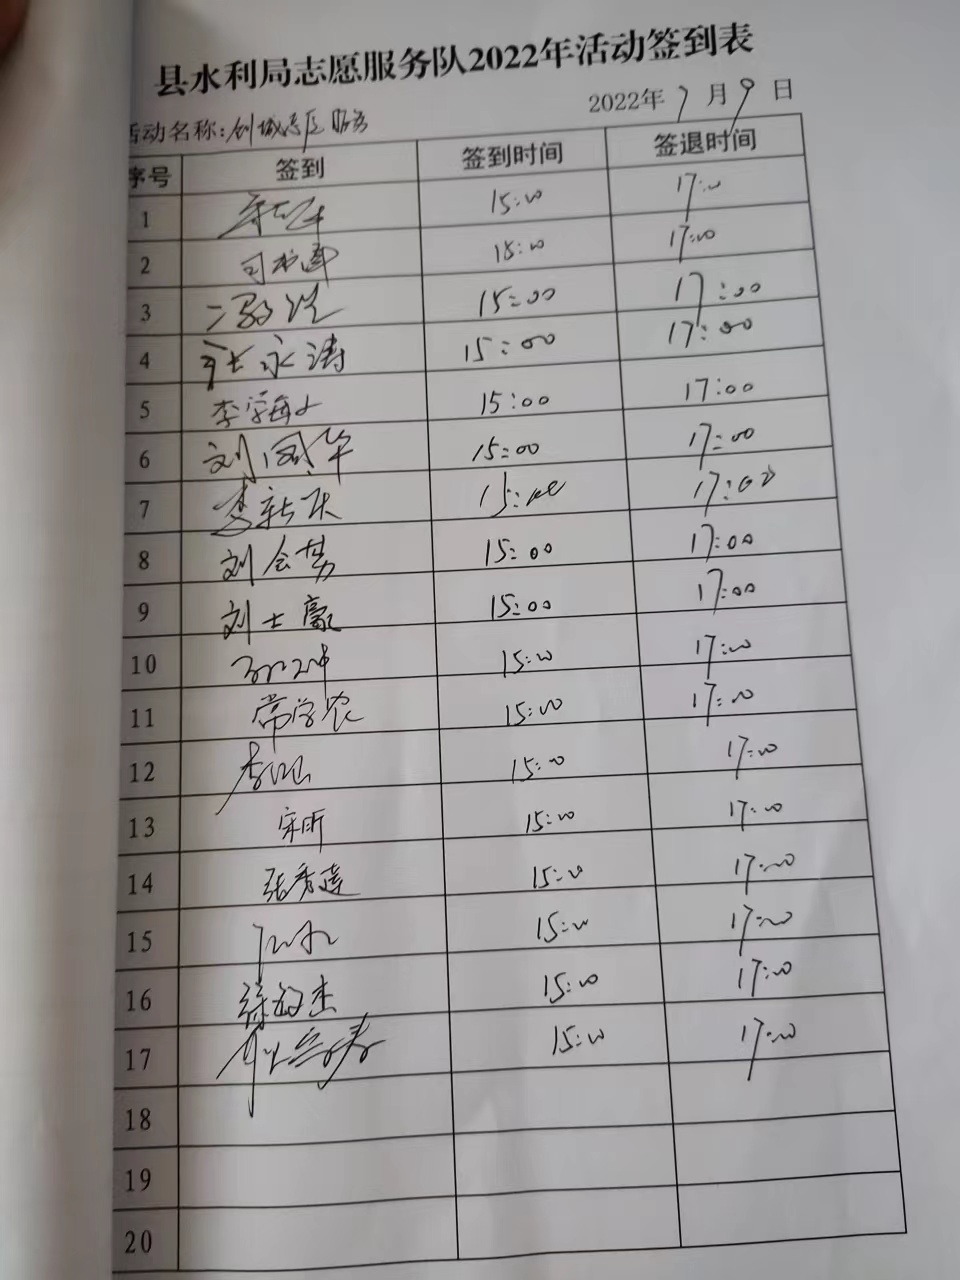 县水利局志愿服务队2022年活动签到表
2022年7月9日
活动名称:创城志愿服务
序号 签到 签到时间 签退时间
1 15:00 17:00
2 15:00 17:00
3 15:00 17:00
4 张永涛 15:00 17:00
5 李学 15:00 17:00
6 刘凤华 15:00 17:00
7 李新庆 15:00 17:00
8 刘会勇 15:00 17:00
9 刘士豪 15:00 17:00
10 15:00 17:00
11 常学农 15:00 17:00
12 15:00 17:00
13 宋昕 15:00 17:00
14 张秀莲 15:00 17:00
15 15:00 17:00
16 杰 15:00 17:00
17 15:00 17:00
18
19
20